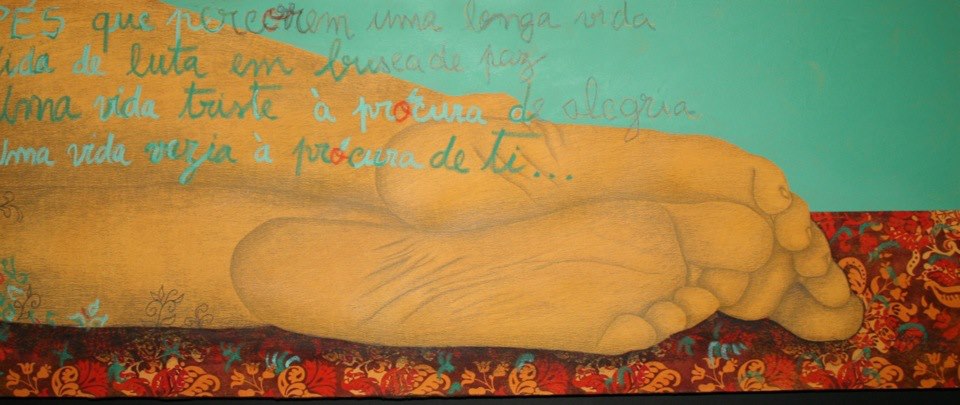 PÉS que percorrem uma longa vida
Vida de luta em busca de paz
Uma vida triste à procura de alegria
Uma vida vazia à procura de ti...